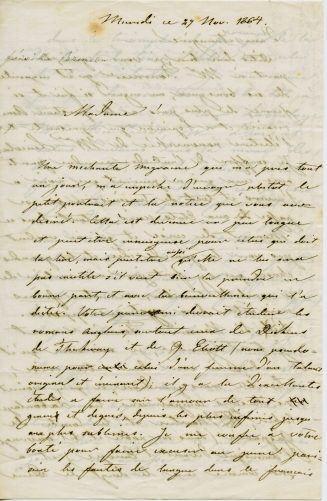 Munich ce 27 Nov. 1864.
Madame!
Une méchante migraine qui m'a pris tout
un jour, m'a empêché d'envoyer plutôt le
petit portrait et la notice que vous avez
désiré. Cette est devenue un peu longue
et peut être ennuyeuse pour celui qui doit
la lire, mais peutêtre ne lui sera
pas inutile s'il veut bien la prendre en
bonne part, et avec la bienveillance qui l'a
dictée. Votre devrait étudier les
romans anglais, surtout ceux de Dickens
de Thackeray et de G Eliott (nom pseudo-
nyme pour celui d'une femme d'un talent
original et immense); il y a de excellentes
études à faire sur l'amour de tout
genre et degrés, depuis les plus infimes jusqu'
aux plus sublimes. Je me confie à votre
bonté pour faire excuser au jeune
sur les fautes de langue dans le français